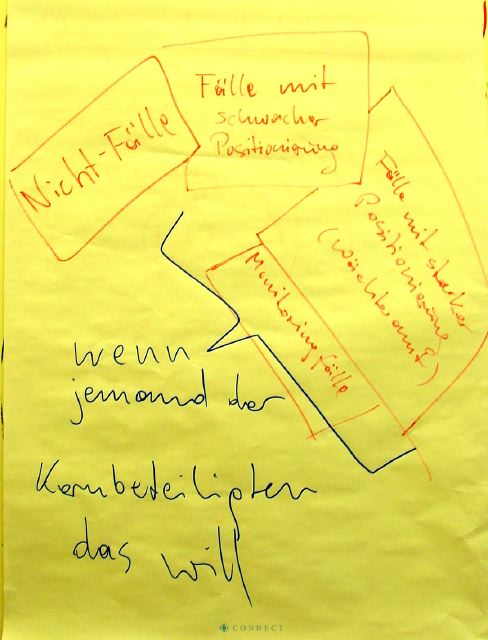 Nicht-Fälle
Fälle mit
schwacher
Positionierung
Fälle mit starker
Positionierung
(Wächteramt)
Monitoringfälle
wenn
jemand der
Kernbeteiligten
das will
CONNECT